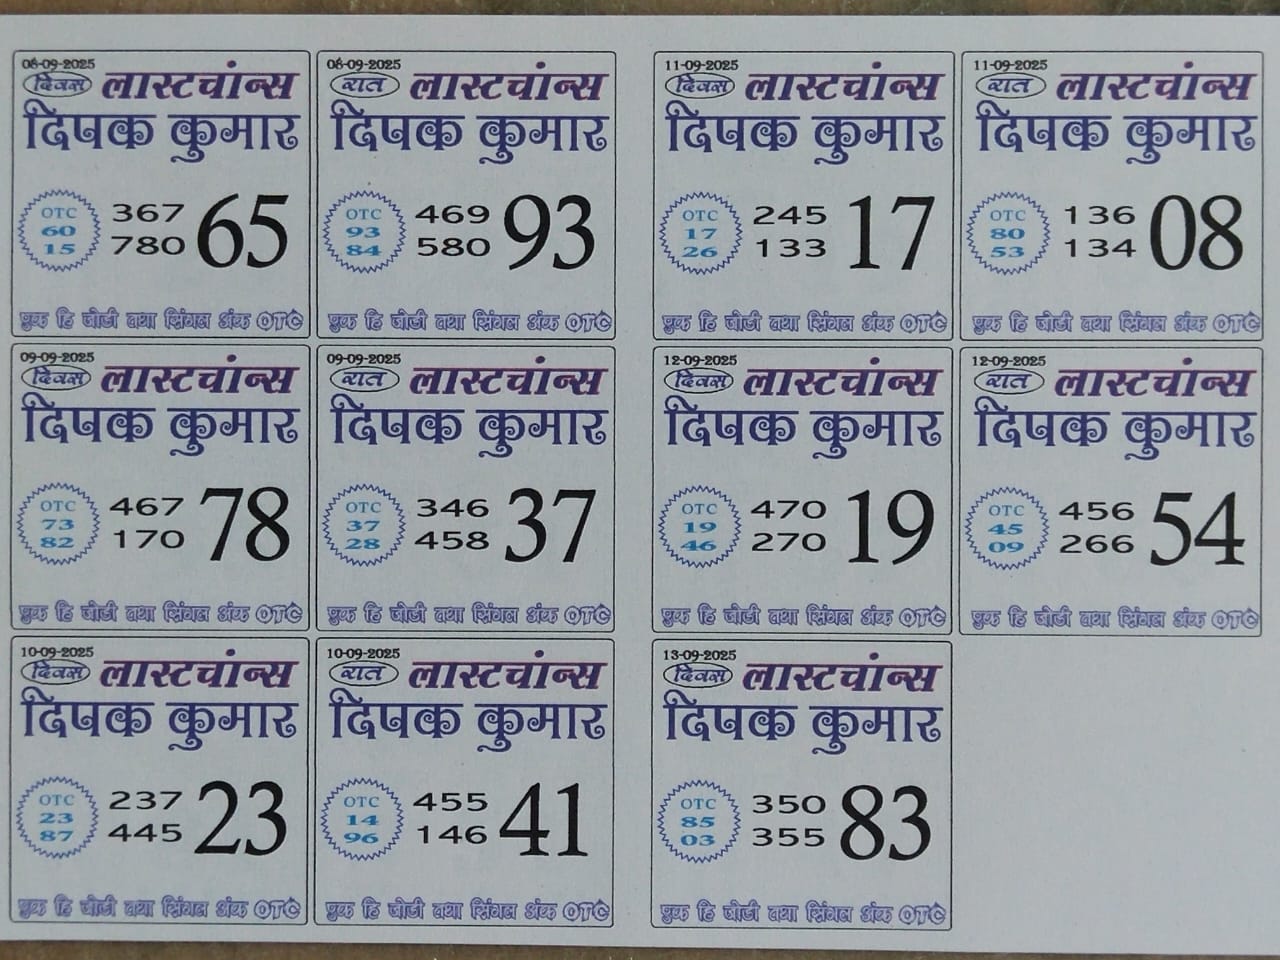 08-09-2025
दिवस लास्टचांन्स
दिपक कुमार
OTC
60
15
367
780
65
एक हि जोडी तथा सिंगल अंक OTC
08-09-2025
रात लास्टचांन्स
दिपक कुमार
OTC
93
84
469
580
93
एक हि जोडी तथा सिंगल अंक OTC
11-09-2025
दिवस लास्टचांन्स
दिपक कुमार
OTC
17
26
245
133
17
एक हि जोडी तथा सिंगल अंक OTC
11-09-2025
रात लास्टचांन्स
दिपक कुमार
OTC
80
53
136
134
08
एक हि जोडी तथा सिंगल अंक OTC
09-09-2025
दिवस लास्टचांन्स
दिपक कुमार
OTC
73
82
467
170
78
एक हि जोडी तथा सिंगल अंक OTC
09-09-2025
रात लास्टचांन्स
दिपक कुमार
OTC
37
28
346
458
37
एक हि जोडी तथा सिंगल अंक OTC
12-09-2025
दिवस लास्टचांन्स
दिपक कुमार
OTC
19
46
470
270
19
एक हि जोडी तथा सिंगल अंक OTC
12-09-2025
रात लास्टचांन्स
दिपक कुमार
OTC
45
09
456
266
54
एक हि जोडी तथा सिंगल अंक OTC
10-09-2025
दिवस लास्टचांन्स
दिपक कुमार
OTC
23
87
237
445
23
एक हि जोडी तथा सिंगल अंक OTC
10-09-2025
रात लास्टचांन्स
दिपक कुमार
OTC
14
96
455
146
41
एक हि जोडी तथा सिंगल अंक OTC
13-09-2025
दिवस लास्टचांन्स
दिपक कुमार
OTC
85
03
350
355
83
एक हि जोडी तथा सिंगल अंक OTC